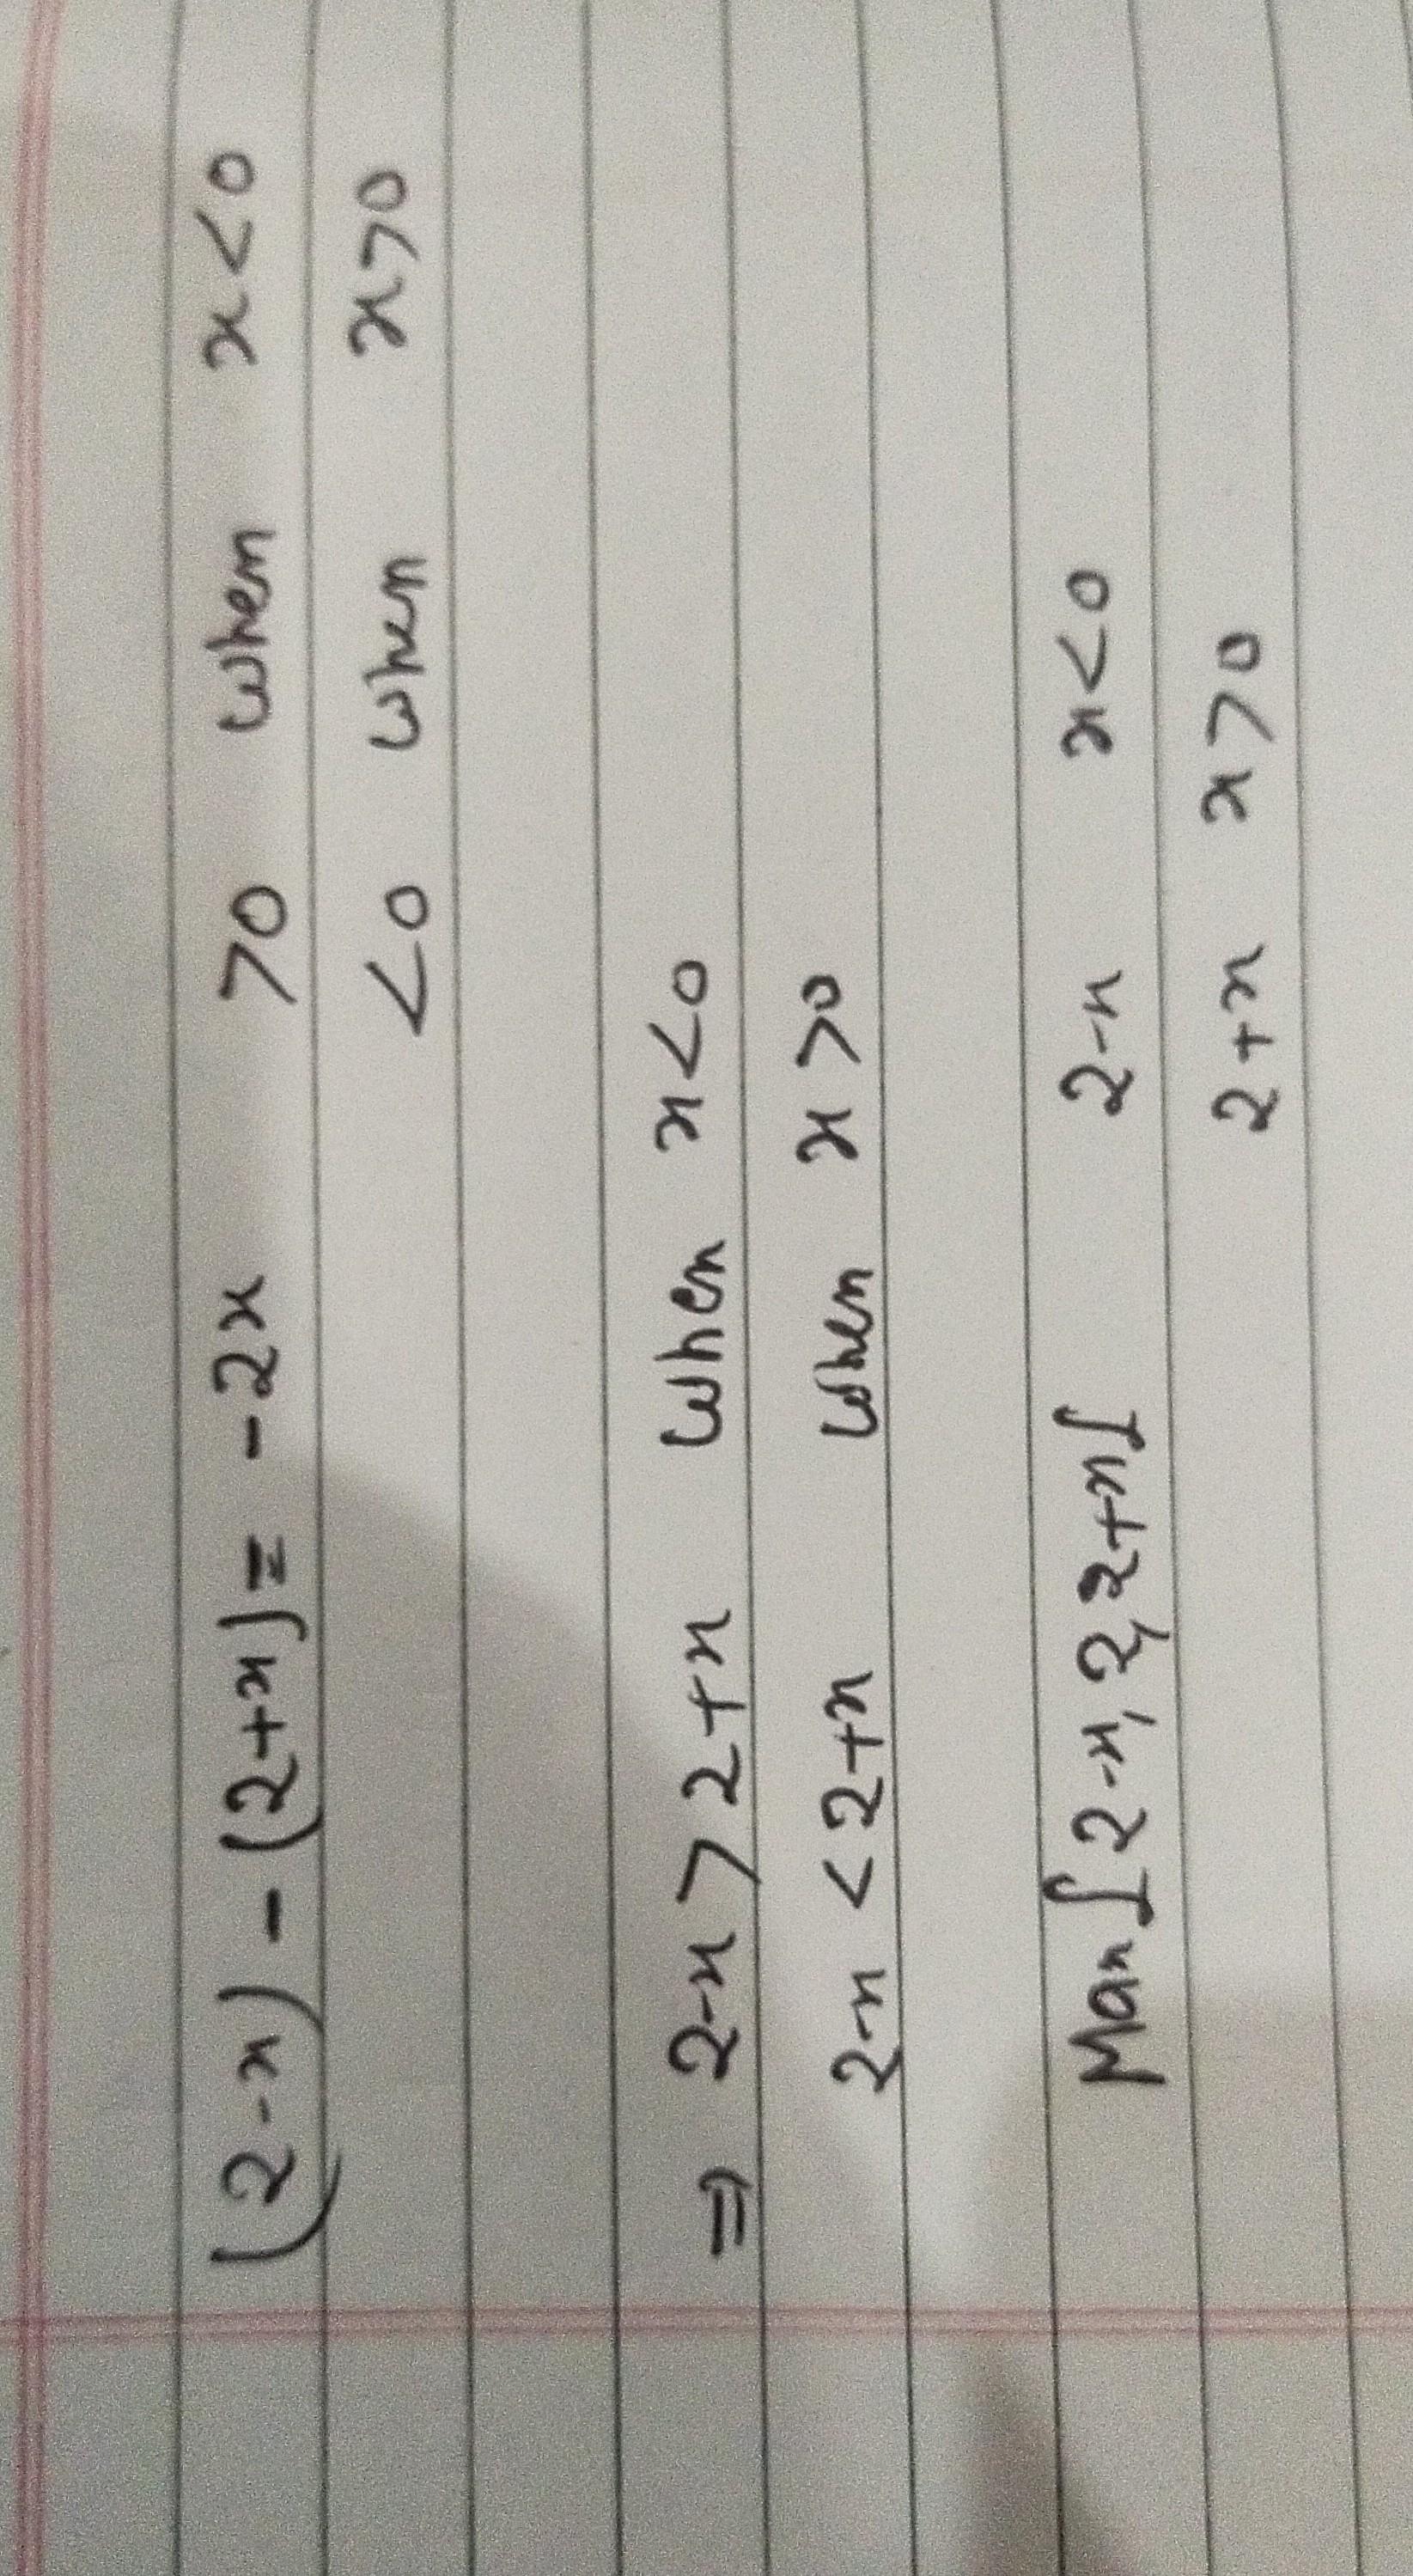 (2-x) - (2+x) = -2x >0 when x<0
<0 when x>0
⇒ 2-x > 2+x when x<0
2-x < 2+x when x>0
Max{2-x, 2, 2+x} 2-x x<0
2+x x>0